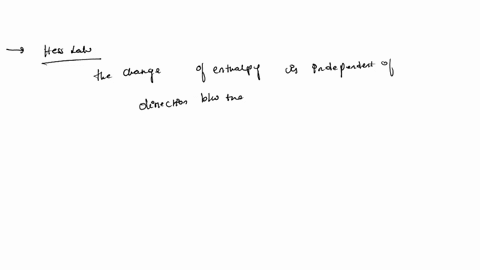 → Hess Law
the change of enthalpy is independent of
direction b/w the